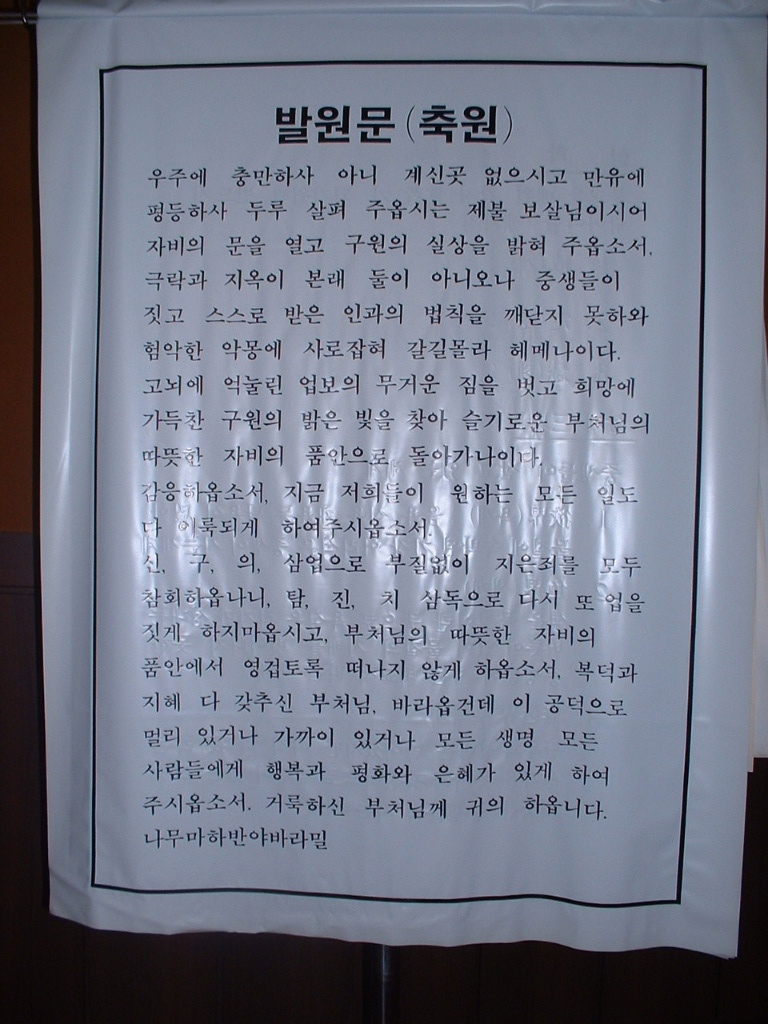 발원문(축원)
우주에 충만하사 아니 계신곳 없으시고 만유에
평등하사 두루 살펴 주옵시는 제불 보살님이시어
자비의 문을 열고 구원의 실상을 밝혀 주옵소서.
극락과 지옥이 본래 둘이 아니오나 중생들이
짓고 스스로 받은 인과의 법칙을 깨닫지 못하와
험악한 악몽에 사로잡혀 갈길몰라 헤메나이다.
고뇌에 억눌린 업보의 무거운 짐을 벗고 희망에
가득찬 구원의 밝은 빛을 찾아 슬기로운 부처님의
따뜻한 자비의 품안으로 돌아가나이다.
감응하옵소서, 지금 저희들이 원하는 모든 일도
다 이룩되게 하여주시옵소서.
신, 구, 의, 삼업으로 부질없이 지은죄를 모두
참회하옵나니, 탐, 진, 치 삼독으로 다시 또 업을
짓게 하지마옵시고, 부처님의 따뜻한 자비의
품안에서 영겁토록 떠나지 않게 하옵소서, 복덕과
지혜 다 갖추신 부처님, 바라옵건데 이 공덕으로
멀리 있거나 가까이 있거나 모든 생명 모든
사람들에게 행복과 평화와 은혜가 있게 하여
주시옵소서. 거룩하신 부처님께 귀의 하옵니다.
나무마하반야바라밀